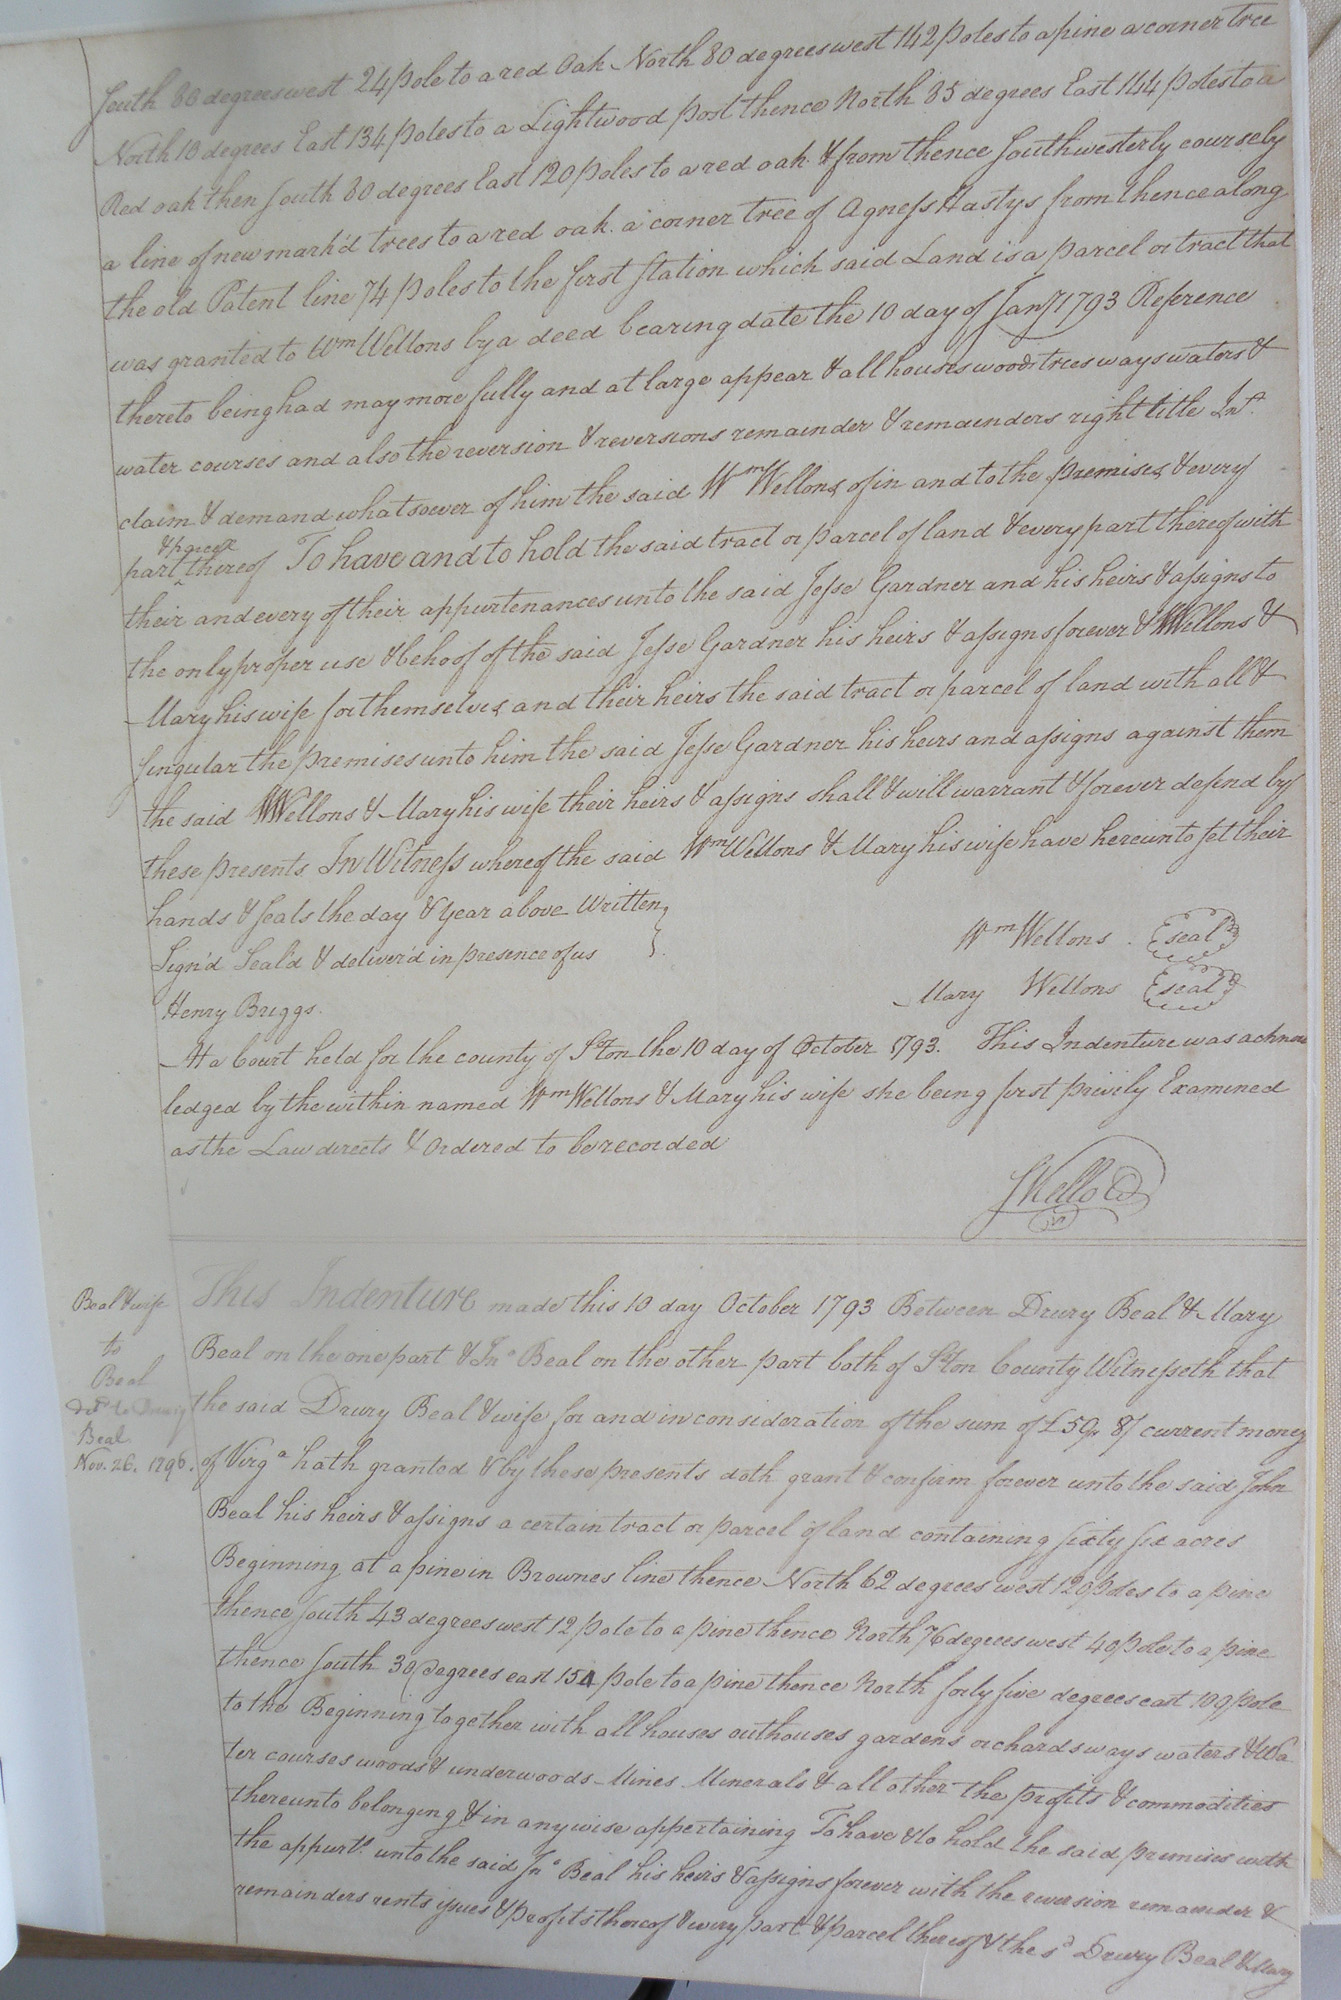 South 80 degrees west 24 pole to a red Oak North 80 degrees west 142 poles to a pine a corner tree
North 10 degrees East 134 poles to a Lightwood post thence North 85 degrees East 144 poles to a
Red oak then South 80 degrees East 120 poles to a red oak & from thence Southwesterly course by
a line of new mark'd trees to a red oak a corner tree of Agness Hastys from thence along
the old Patent line 74 poles to the first Station which said Land is a parcel or tract that
was granted to Wm Wellons by a deed bearing date the 10 day of Jany 1793 Reference
thereto being had may more fully and at large appear & all houses woods trees ways waters &
water courses and also the reversion & reversions remainder & remainders right title Int.
claim & demand whatsoever of him the said Wm Wellons of in and to the premises & every
part & parcel thereof To have and to hold the said tract or parcel of land & every part thereof with
their and every of their appurtenances unto the said Jesse Gardner and his heirs & assigns to
the only proper use & behoof of the said Jesse Gardner his heirs & assigns forever & WWellons &
Mary his wife for themselves and their heirs the said tract or parcel of land with all &
Singular the premises unto him the said Jesse Gardner his heirs and assigns against them
the said WWellons & Mary his wife their heirs & assigns shall & will warrant & forever defend by
these presents In Witness whereof the said Wm Wellons & Mary his wife have hereunto set their
hands & Seals the day & year above Written
Sign'd Seal'd & deliver'd in presence of us
Wm Wellons seal
Henry Briggs.
Mary Wellons seal
At a Court held for the county of S'ton the 10 day of October 1793. This Indenture was acknow
ledged by the within named Wm Wellons & Mary his wife she being first privily Examined
as the Law directs & Ordered to be recorded
SKello CC
Beal & wife
to
Beal
del'd to Drury
Beal
Nov. 26. 1796.
This Indenture made this 10 day October 1793 Between Drury Beal & Mary
Beal on the one part & Jno Beal on the other part both of S'ton County Witnesseth that
the said Drury Beal & wife for and in consideration of the sum of £59,, 8/ current money
of Virga hath granted & by these presents doth grant & confirm forever unto the said John
Beal his heirs & assigns a certain tract or parcel of land containing Sixty six acres
Beginning at a pine in Brownes line thence North 62 degrees west 120 poles to a pine
thence South 43 degrees west 12 pole to a pine thence North 76 degrees west 40 pole to a pine
thence South 30 degrees east 154 pole to a pine thence North forty five degrees east 109 pole
to the Beginning together with all houses outhouses gardens orchards ways waters & Wa
ter courses woods & underwoods Mines Minerals & all other the profits & commodities
thereunto belonging & in any wise appertaining To have & to hold the said premises with
the appurts. unto the said Jno Beal his heirs & assigns forever with the reversion remainder &
remainders rents issues & profits thereof & every part & parcel thereof & the sd Drury Beal & Mary